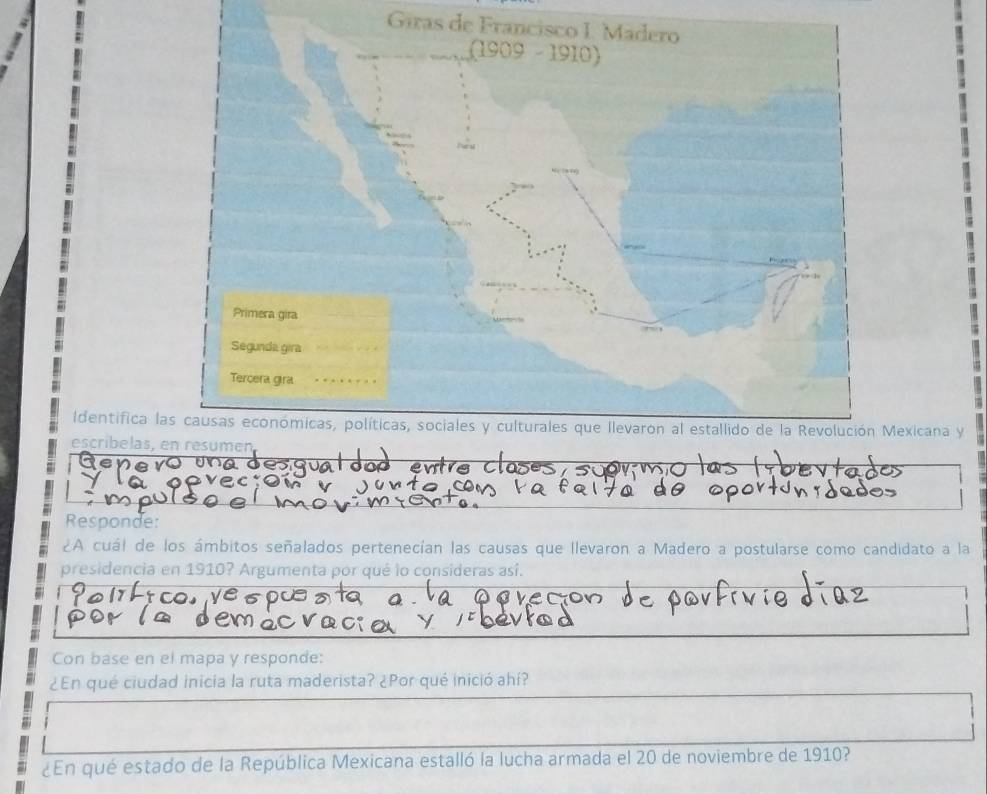 Giras de Francisco I. Madero
(1909 - 1910)
Parral
Monterrey
Torreón
Progreso
Primera gira
Segunda gira
Tercera gira
Identifica las causas económicas, políticas, sociales y culturales que llevaron al estallido de la Revolución Mexicana y
escríbelas, en resumen.
Genero una desigualdad entre clases, suprimio las libertades
y la opreción y junto con la falta de oportunidades
impulso el movimiento.
Responde:
¿A cuál de los ámbitos señalados pertenecían las causas que llevaron a Madero a postularse como candidato a la
presidencia en 1910? Argumenta por qué lo consideras así.
Politico, respuesta a la opreción de porfirio diaz
por la democracia y libertad
Con base en el mapa y responde:
¿En qué ciudad inicia la ruta maderista? ¿Por qué inició ahí?
¿En qué estado de la República Mexicana estalló la lucha armada el 20 de noviembre de 1910?